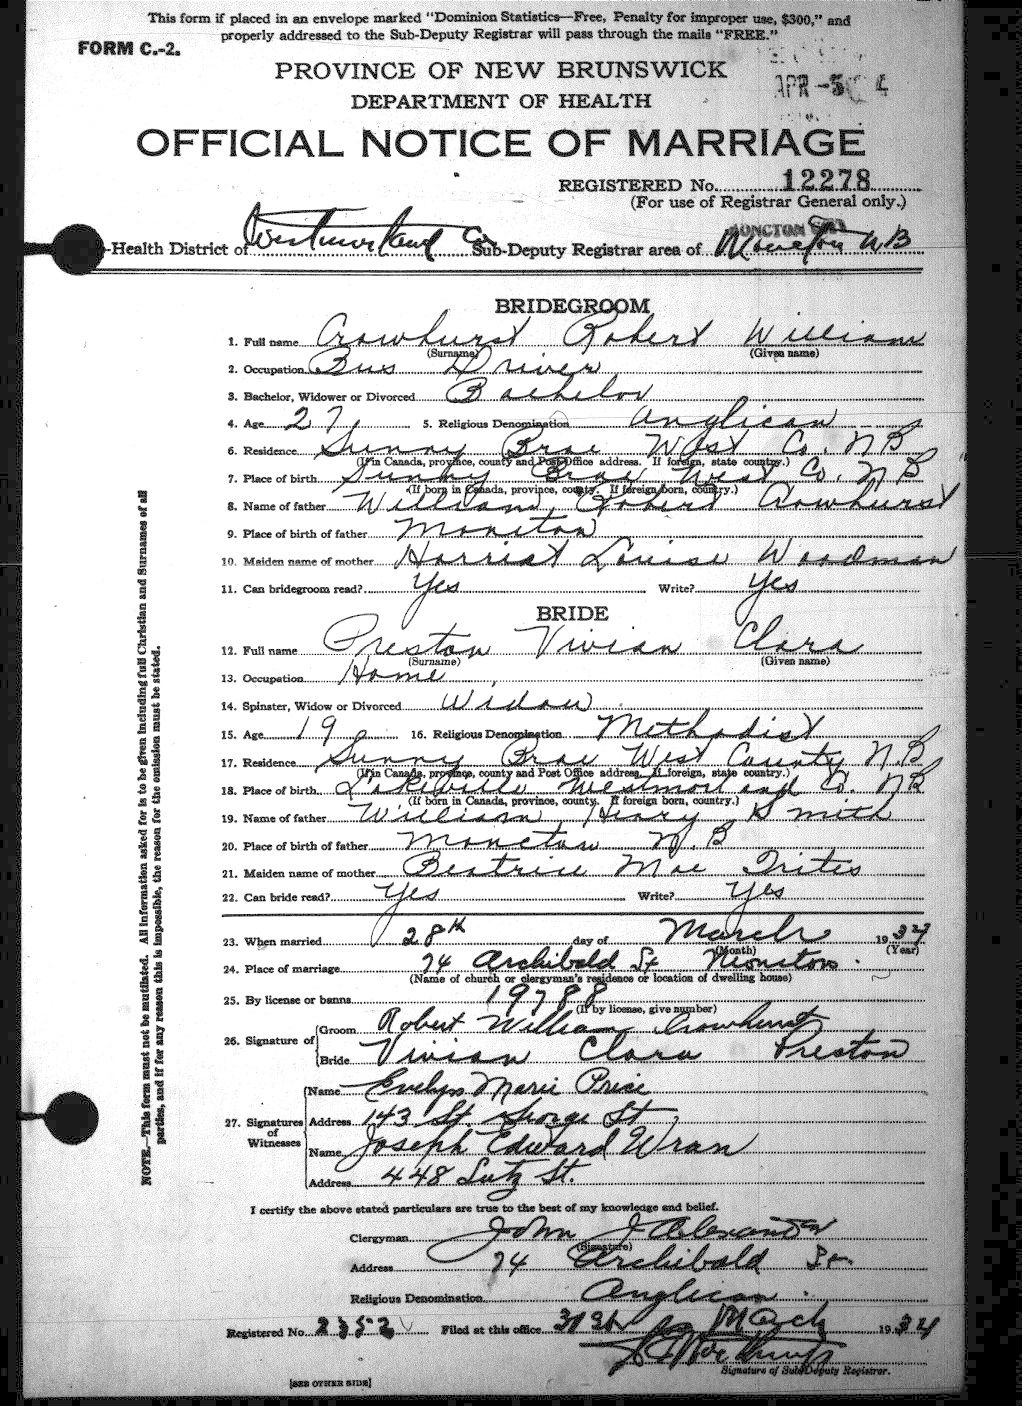 This form if placed in an envelope marked "Dominion Statistics—Free, Penalty for improper use, $300," and
properly addressed to the Sub-Deputy Registrar will pass through the mails "FREE."
FORM C.-2.
PROVINCE OF NEW BRUNSWICK
APR -5 4
DEPARTMENT OF HEALTH
OFFICIAL NOTICE OF MARRIAGE
REGISTERED No. 12278
(For use of Registrar General only.)
-Health District of Westmorland Co Sub-Deputy Registrar area of Moncton NB
BRIDEGROOM
1. Full name Crowhurst Robert William
(Surname) (Given name)
2. Occupation Bus Driver
3. Bachelor, Widower or Divorced Bachelor
4. Age 27 5. Religious Denomination Anglican
6. Residence Sunny Brae West Co. NB
(If in Canada, province, county and Post Office address. If foreign, state country.)
7. Place of birth Sunny Brae West Co. NB
(If born in Canada, province, county. If foreign born, country.)
8. Name of father William Robert Crowhurst
9. Place of birth of father Moncton
10. Maiden name of mother Harriet Louise Woodman
11. Can bridegroom read? Yes Write? Yes
BRIDE
12. Full name Preston Vivian Clara
(Surname) (Given name)
13. Occupation Home
14. Spinster, Widow or Divorced Widow
15. Age 19 16. Religious Denomination Methodist
17. Residence Sunny Brae West County N.B
(If in Canada, province, county and Post Office address. If foreign, state country.)
18. Place of birth Lakeville Westmorland Co. NB
(If born in Canada, province, county. If foreign born, country.)
19. Name of father William Henry Smith
20. Place of birth of father Moncton N.B
21. Maiden name of mother Beatrice Mae Trites
22. Can bride read? Yes Write? Yes
23. When married 28th day of March 1934
(Month) (Year)
24. Place of marriage 74 Archibald St Moncton.
(Name of church or clergyman's residence or location of dwelling house)
25. By license or banns 19788
(If by license, give number)
26. Signature of Groom Robert William Crowhurst
Bride Vivian Clara Preston
27. Signatures of Witnesses
Name Evelyn Marie Price
Address 143 St. George St
Name Joseph Edward Wran
Address 448 Lutz St.
I certify the above stated particulars are true to the best of my knowledge and belief.
Clergyman John J Alexander
(Signature)
Address 74 Archibald St.
Religious Denomination Anglican.
Registered No. 2352 Filed at this office 31st March 1934
Signature of Sub-Deputy Registrar.
[SEE OTHER SIDE]
NOTE.—This form must not be mutilated. All information asked for is to be given including full Christian and Surnames of all
parties, and if for any reason this is impossible, the reason for the omission must be stated.